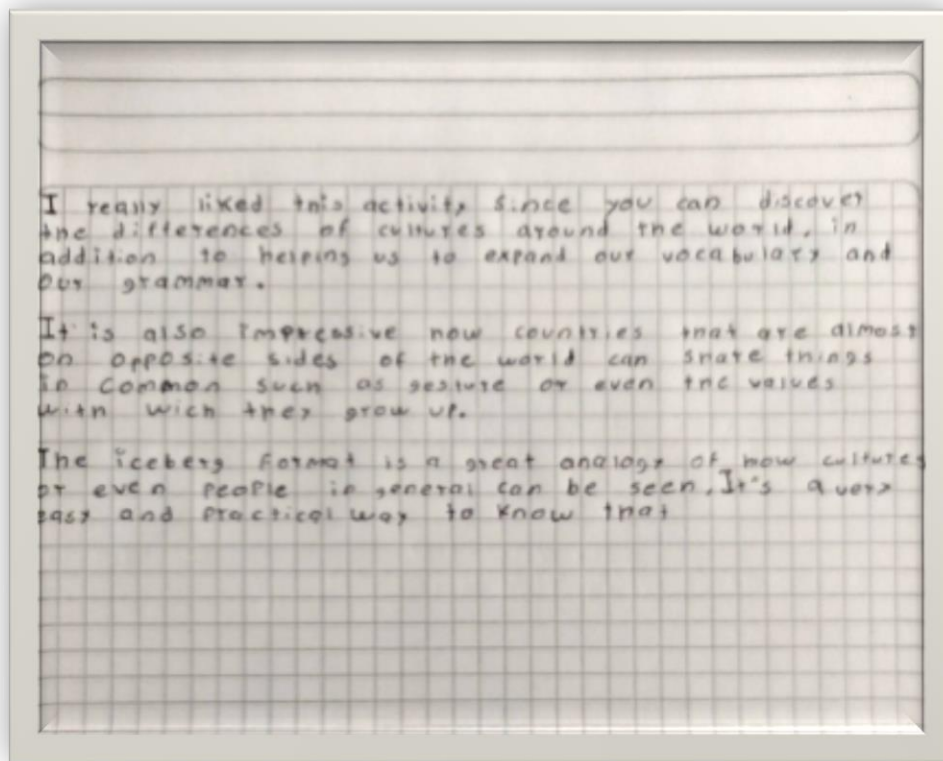 I really liked this activity since you can discover
the differences of cultures around the world, in
addition to helping us to expand our vocabulary and
our grammar.
It is also impressive how countries that are almost
on opposite sides of the world can share things
in common such as gesture or even the values
with wich they grow up.
The iceberg format is a great analogy of how cultures
or even people in general can be seen. It's a very
easy and practical way to know that